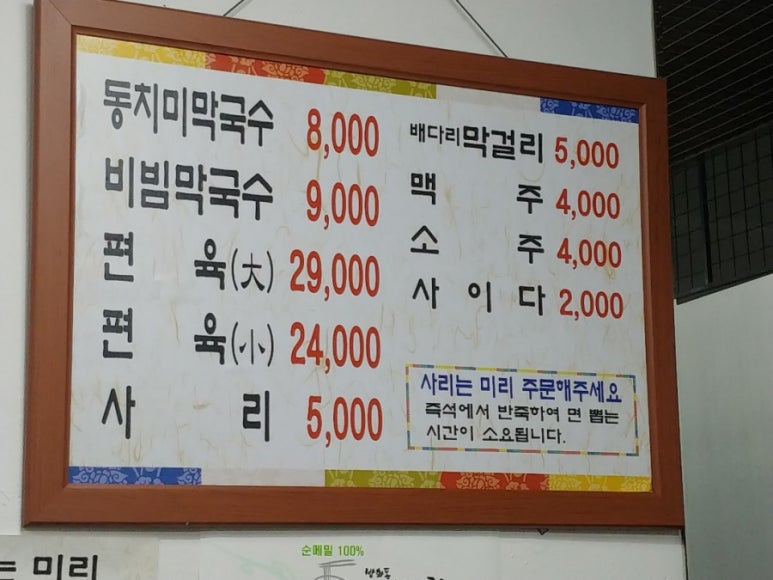 동치미막국수 8,000
비빔막국수 9,000
편 육(大) 29,000
편 육(小) 24,000
사 리 5,000
배다리막걸리 5,000
맥 주 4,000
소 주 4,000
사 이 다 2,000
사리는 미리 주문해주세요
즉석에서 반죽하여 면 뽑는
시간이 소요됩니다.
는 미리
순메밀 100%